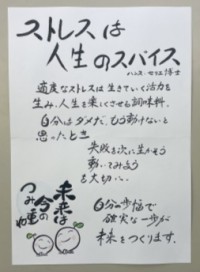 ストレスは
人生のスパイス
ハンス・セリエ博士
適度なストレスは生きていく活力を
生み、人生を楽しくさせる調味料。
自分はダメだ、もう動けないと
思ったとき
失敗を次に生かそう
動いてみよう
も大切い。
自分の歩幅で
確実な一歩が
未来をつくります。
未来は
今の
つみ重ね